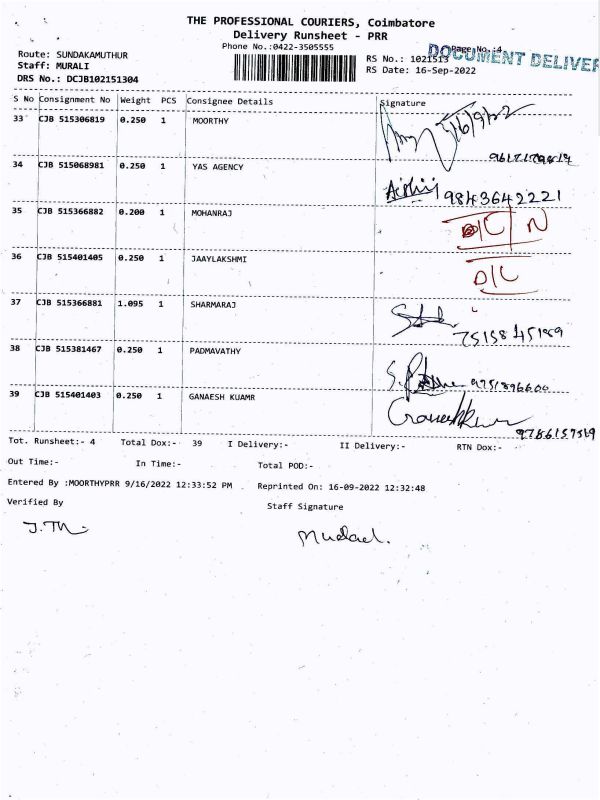 THE PROFESSIONAL COURIERS, Coimbatore
Delivery Runsheet - PRR
Phone No.:0422-3505555
Page No.:4
DOCUMENT DELIVER
Route: SUNDAKAMUTHUR
RS No.: 1021513
Staff: MURALI
RS Date: 16-Sep-2022
DRS No.: DCJB102151304
S No Consignment No Weight PCS Consignee Details Signature
33 CJB 515306819 0.250 1 MOORTHY 16/9/22
34 CJB 515068981 0.250 1 YAS AGENCY 9843642221
35 CJB 515366882 0.200 1 MOHANRAJ D/C N
36 CJB 515401405 0.250 1 JAAYLAKSHMI D/C
37 CJB 515366881 1.095 1 SHARMARAJ 7515845189
38 CJB 515381467 0.250 1 PADMAVATHY 9751896600
39 CJB 515401403 0.250 1 GANAESH KUAMR Ganeshkumar
Tot. Runsheet:- 4 Total Dox:- 39 I Delivery:- II Delivery:- RTN Dox:-
Out Time:- In Time:- Total POD:-
Entered By :MOORTHYPRR 9/16/2022 12:33:52 PM Reprinted On: 16-09-2022 12:32:48
Verified By Staff Signature